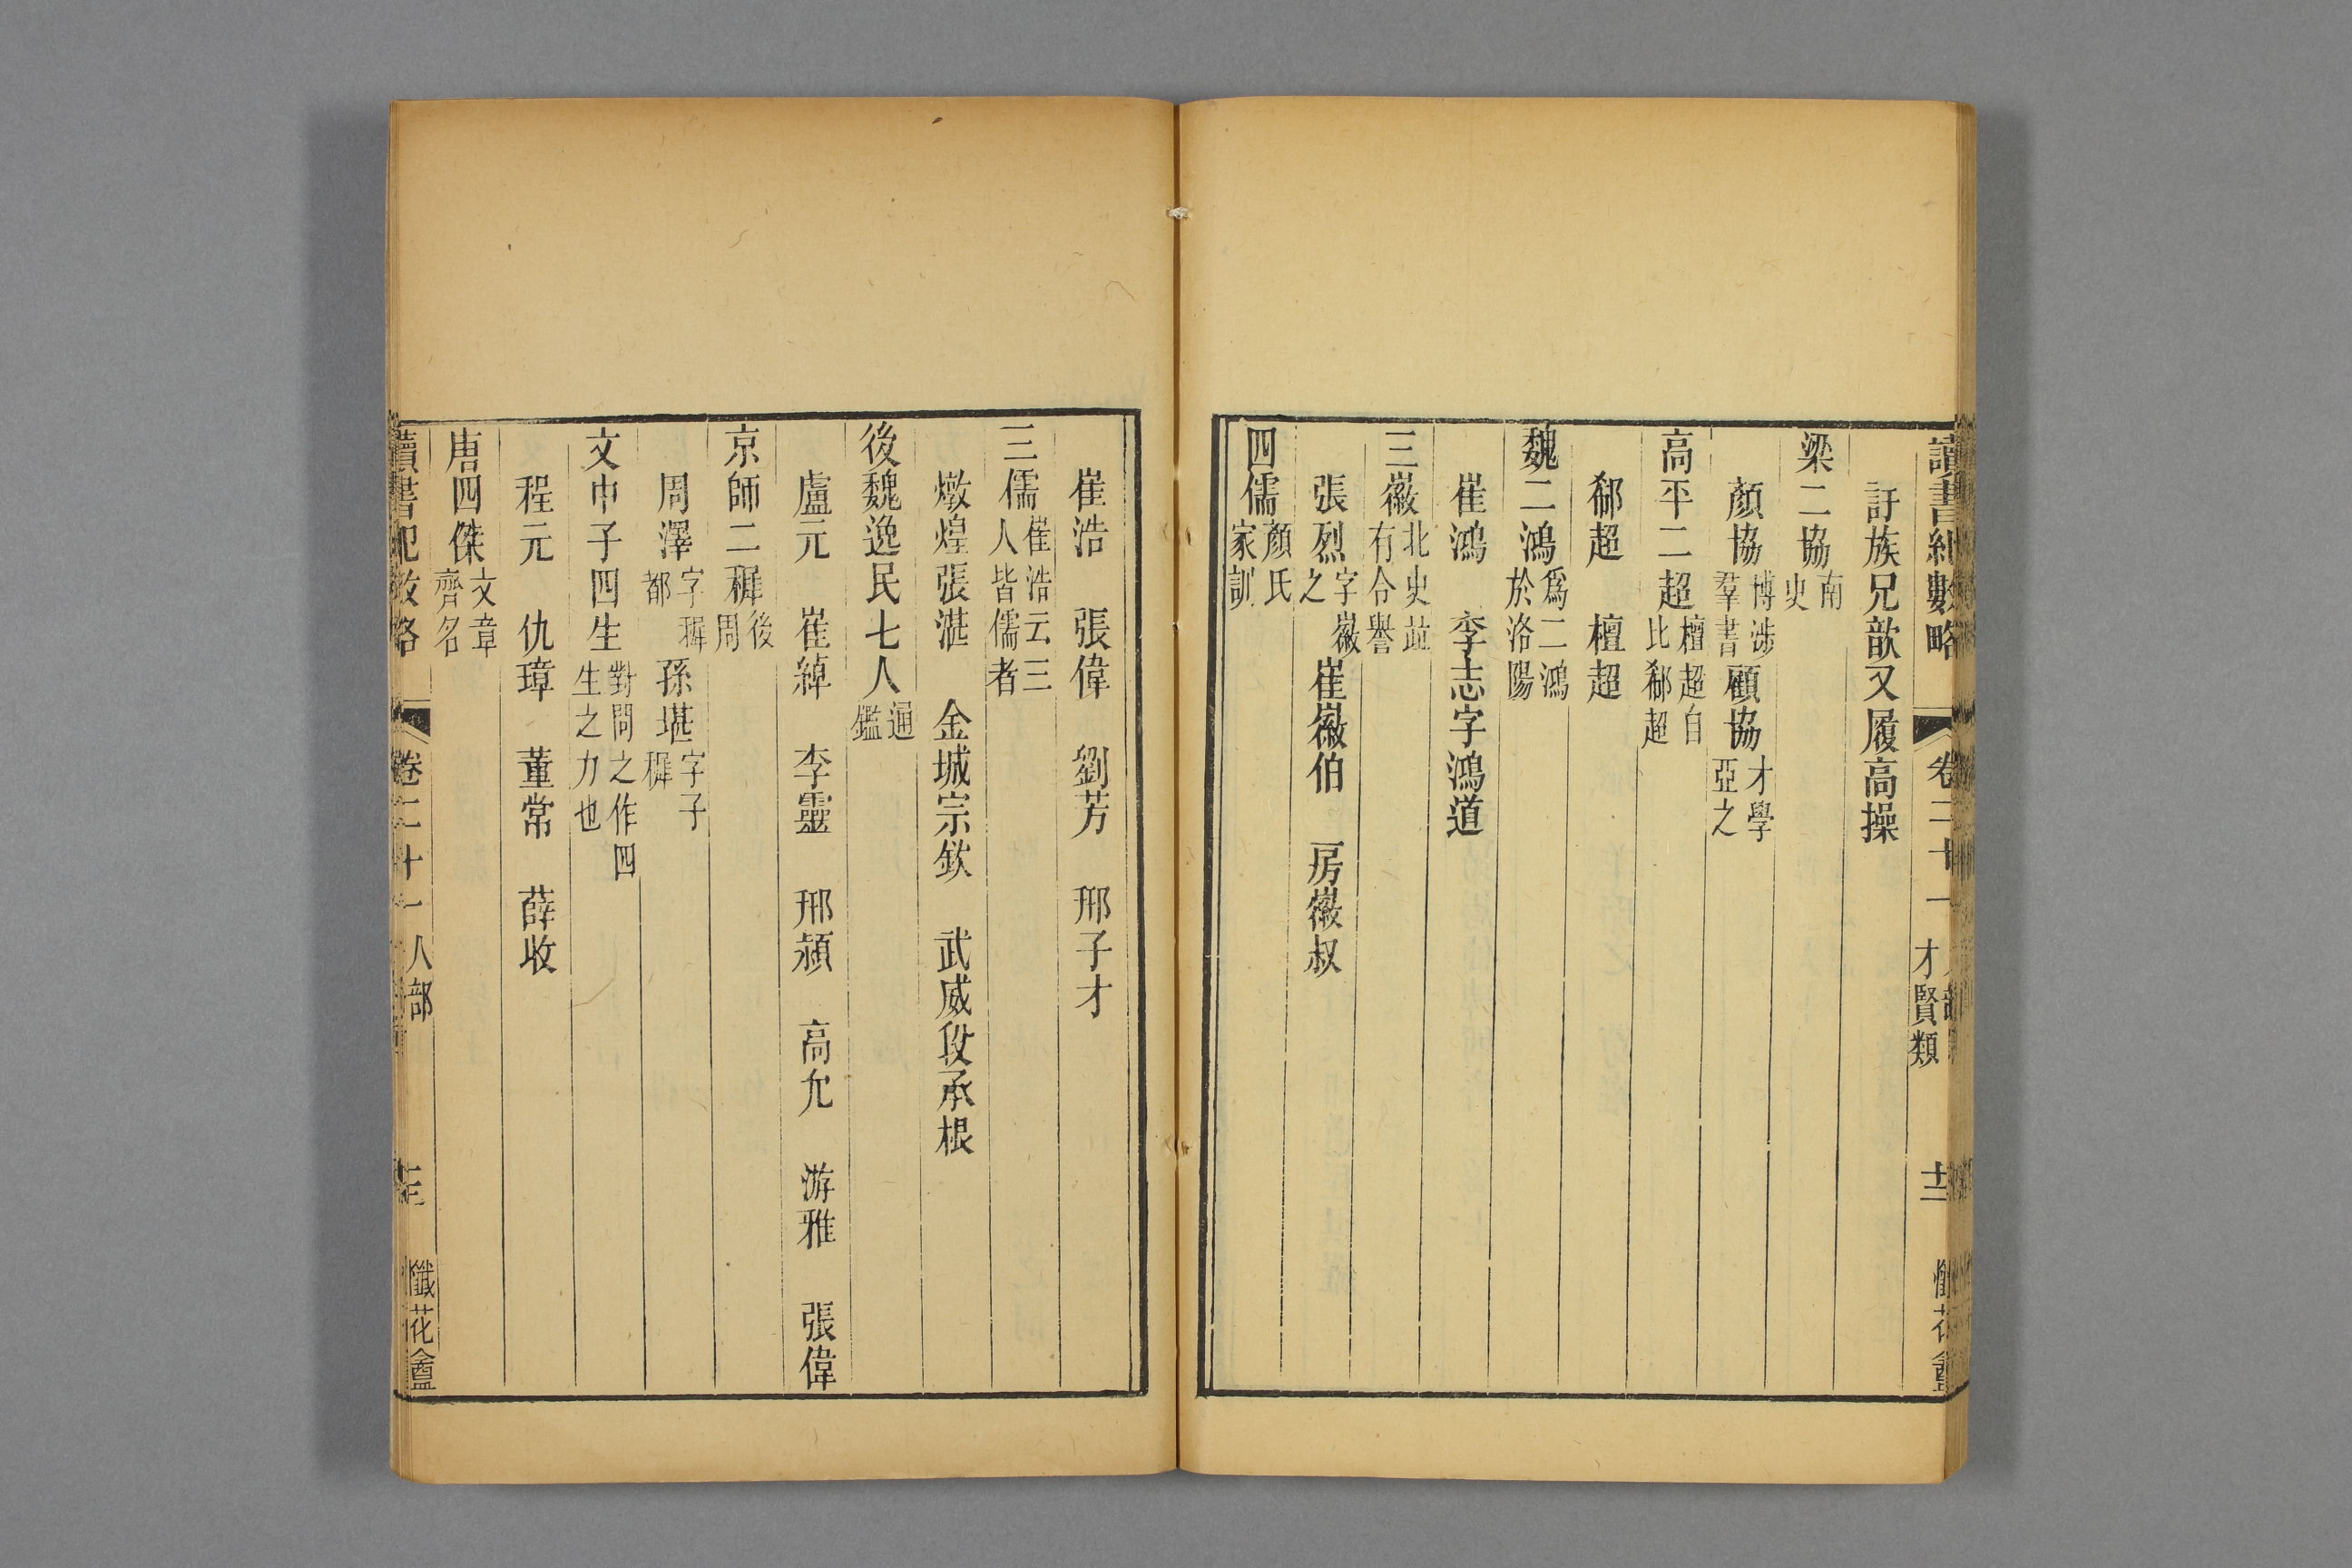 讀書紀數略 卷二十一 人部 才賢類 十二 懺花盦
訏族兄歆又履高操
梁二協南史
顏協博涉羣書 顧協才學亞之
高平二超檀超自比郗超
郗超 檀超
魏二鴻爲二鴻於洛陽
崔鴻 李志字鴻道
三徽北史竝有令譽
張烈字徽之 崔徽伯 房徽叔
四儒顏氏家訓
崔浩 張偉 劉芳 邢子才
三儒崔浩云三人皆儒者
燉煌張湛 金城宗欽 武威段承根
後魏逸民七人通鑑
盧元 崔綽 李靈 邢潁 高允 游雅 張偉
京師二穉後周
周澤字穉都 孫堪字子穉
文中子四生對問之作四生之力也
程元 仇璋 董常 薛收
唐四傑文章齊名
讀書紀數略 卷二十一 人部 十三 懺花盦